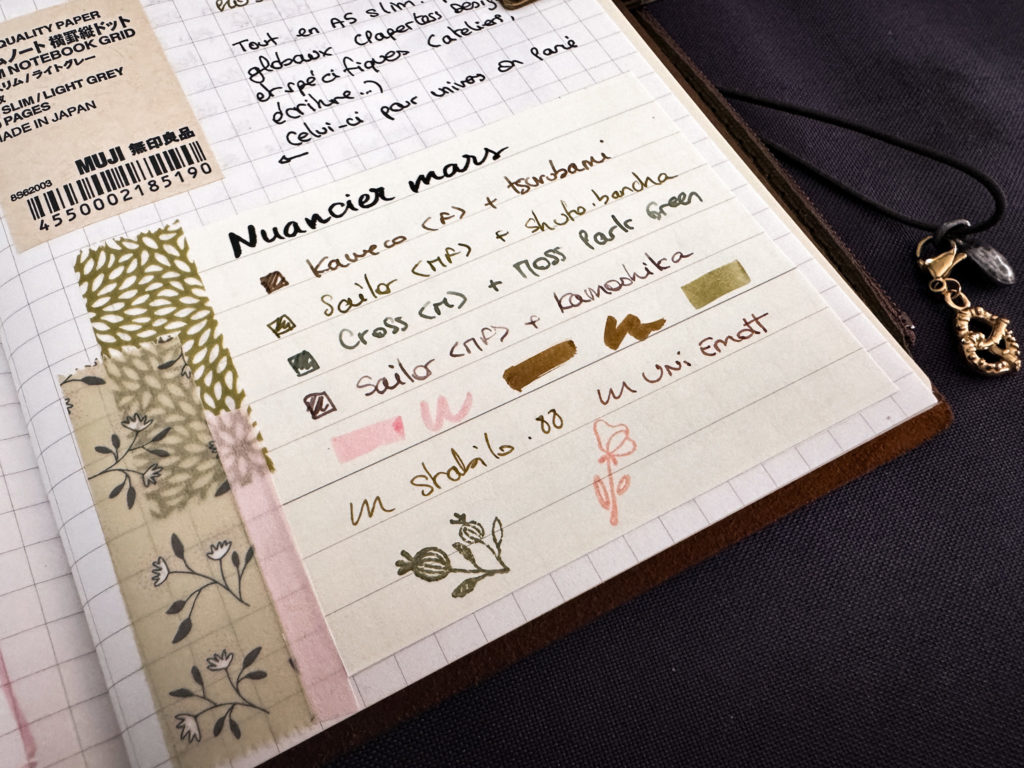 QUALITY PAPER
ノート 横罫縦ドット
NOTEBOOK GRID
スリム/ライトグレー
SLIM / LIGHT GREY
PAGES
MADE IN JAPAN
MUJI 無印良品
8S62003
4550002185190
Tout en A5 slim.
globaux
et spécifiques (atelier,
écriture..)
← Celui-ci pour univers
Nuancier mars
Kaweco (F) + tsurubami
Sailor (MF) + shuto.bancha
Cross (M) + Moss Park Green
Sailor (MF) + Kamoshika
m Stabilo .88
m UNi Emott